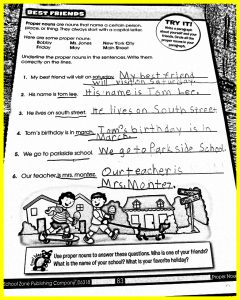 BEST FRIENDS
Proper nouns are nouns that name a certain person,
place, or thing. They always start with a capital letter.
Here are some proper nouns.
Bobby Ms. Jones New York City
Friday May Main Street
Underline the proper nouns in the sentences. Write them
correctly on the lines.
TRY IT!
Write a paragraph
about yourself and your
best friend. Circle all the
proper nouns in your
paragraph.
1. My best friend will visit on saturday. My best friend
will visit on Saturday.
2. His name is tom lee. His name is Tom Lee.
3. He lives on south street. He lives on South Street
4. Tom's birthday is in march. Tom's birthday is in
March.
5. We go to parkside school. We go to Parkside School.
6. Our teacher is mrs. montez. Our teacher is
Mrs. Montez.
Use proper nouns to answer these questions. Who is one of your friends?
What is the name of your school? What is your favorite holiday?
School Zone Publishing Company 06318
83
Proper Nouns